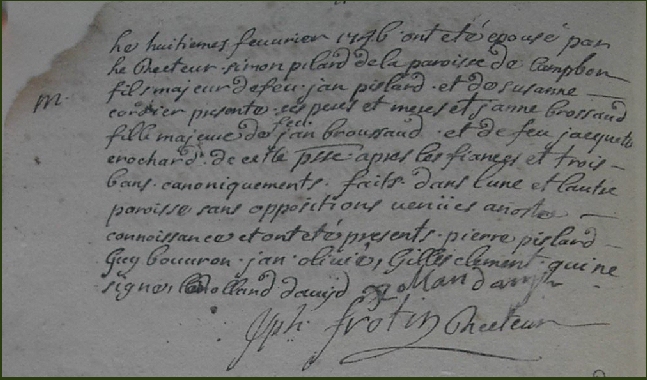 Le huitiemes feuurier 1746 ont eté epousé par
le Recteur simon pilard de la paroisse de Campbon
fils majeur de feu jan pislard et de susanne
M. cordier presente ses peres et meres et janne brossaud
fille majeure de feu jan broussaud et de feu jacquette
crochard de cette psse apres les fiances et trois
bans canoniquements faits dans lune et lautre
paroisse sans oppositions venües a nostre
connoissance et ont eté presents pierre pislard
Guy bouuron jan oliuié, Gilles clement qui ne
signes Rolland dauid
Jph. frotin Recteur